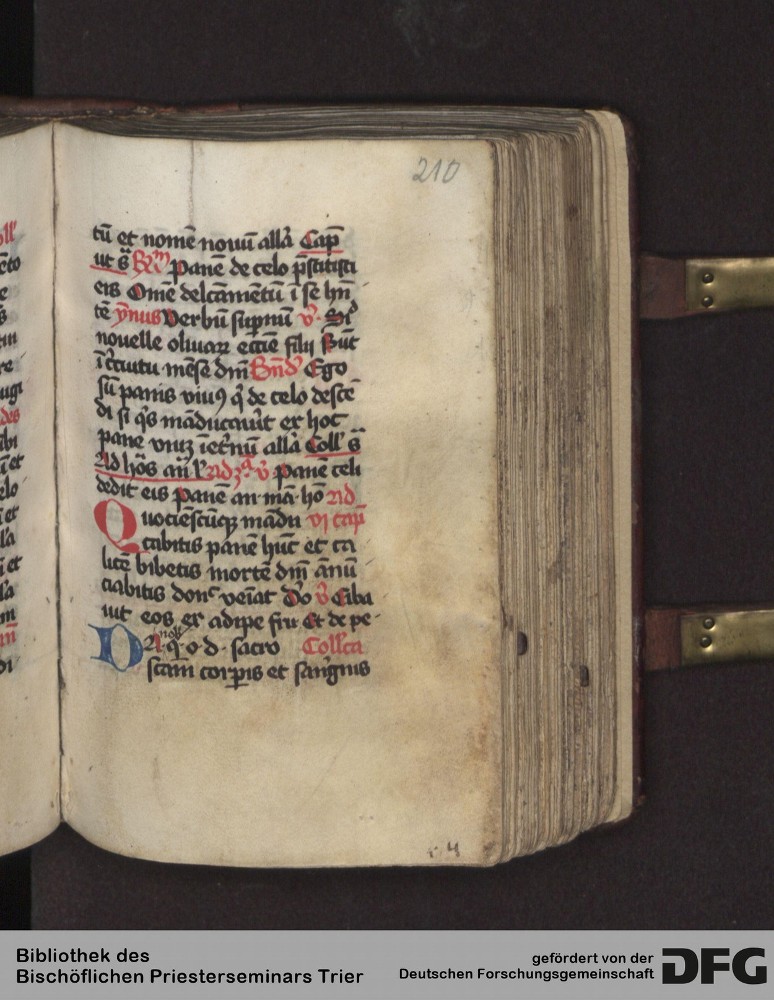 210
tū et nomē nouū allā Cap̄
ut s̄ Rm̄ Panē de celo p̄stitisti
eis Omē delcāmētū ī se hn̄
tē ẏnus Verbū supnū v̇ Sic̄
nouelle oliuaꝝ eccīe filij Sūt
ī cͥcuitu mēse dnī Bn̄dͨ Ego
sū panis viuꝯ qͥ de celo descē
di si qͥs māducauit̄ ex hoc
pane viuꝫ īet̄nū allā Coll̄ s̄
Ad hōs an̄ l̄ Ad 3ᵃ v̇ Panē celi
dedit eis Panē an· mā· hō Ad
Quociēscūqꝫ mādu vj cap̄
cabitis panē hūc et ca
licē bibetis mortē dnī ānū
ciabitis donͨ veīat Ꝟo v̇ Ciba
uit eos ex adipe fru Et de pe
Da qͥ o· d· sacro Coll̄ca
nob
scam corꝑis et sangͥnis
Bibliothek des
Bischöflichen Priesterseminars Trier
gefördert von der
Deutschen Forschungsgemeinschaft
DFG